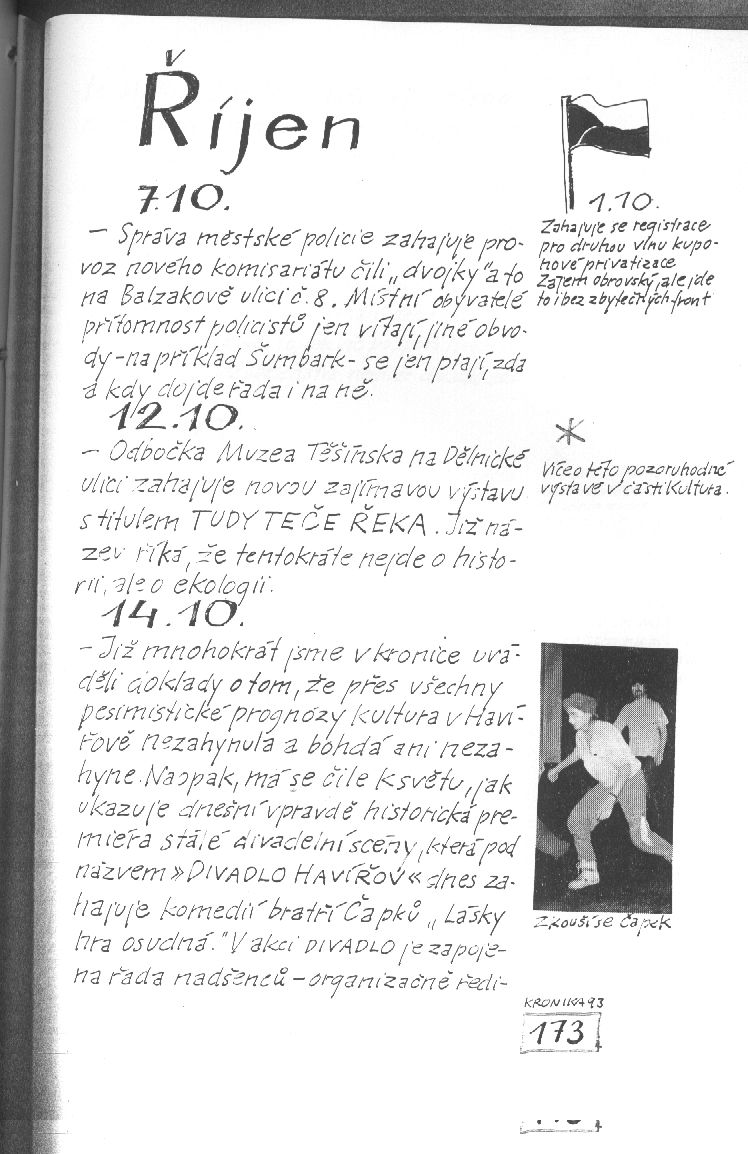 Říjen
7.10.
– Správa městské policie zahajuje pro-
voz nového komisariátu čili „dvojky“ a to
na Balzakově ulici č. 8. Místní obyvatelé
přítomnost policistů jen vítají, jiné obvo-
dy – například Šumbark – se jen ptají, zda
a kdy dojde řada i na ně.
1.10.
Zahajuje se registrace
pro druhou vlnu kupo-
nové privatizace
Zájem obrovský, ale jde
to i bez zbytečných front
12.10.
– Odbočka Muzea Těšínska na Dělnické
ulici zahajuje novou zajímavou výstavu
s titulem TUDY TEČE ŘEKA. Již ná-
zev říká, že tentokráte nejde o histo-
rii, ale o ekologii.
*
Více o této pozoruhodné
výstavě v části Kultura.
14.10.
– Již mnohokrát jsme v kronice uvá-
děli doklady o tom, že přes všechny
pesimistické prognózy kultura v Haví-
řově nezahynula a bohdá ani neza-
hyne. Naopak, má se čile k světu, jak
ukazuje dnešní vpravdě historická pre-
miéra stálé divadelní scény, která pod
názvem »DIVADLO HAVÍŘOV« dnes za-
hajuje komedií bratří Čapků „Lásky
hra osudná.“ V akci DIVADLO je zapoje-
na řada nadšenců – organizačně ředi-
Zkouší se Čapek
KRONIKA 93
173